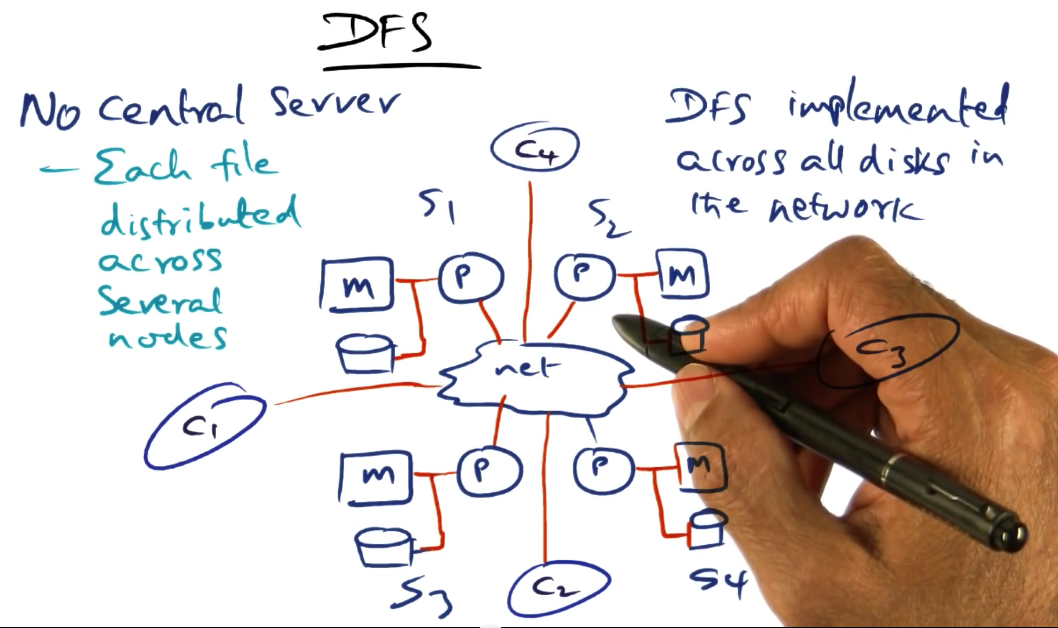 DFS
No central server
– Each file
distributed
across
several
nodes
DFS implemented
across all disks in
the network
C4
S1
S2
M
P
P
M
net
C3
C1
M
P
P
M
S3
C2
S4